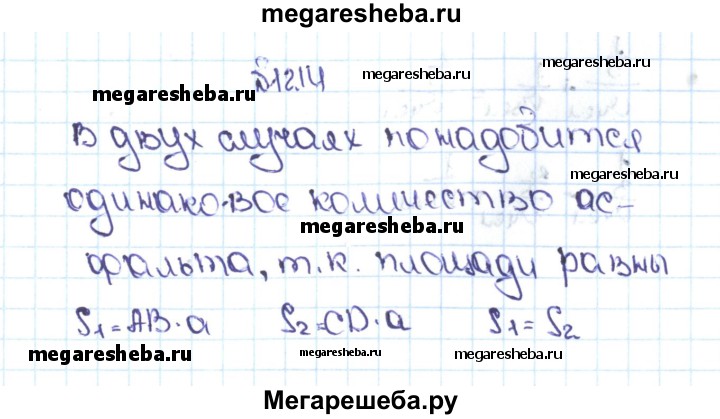 megaresheba.ru
№12.14
megaresheba.ru
megaresheba.ru
megaresheba.ru
В двух случаях понадобится
одинаковое количество ас-
megaresheba.ru
megaresheba.ru
фальта, т.к. площади равны
S₁=AB·a S₂=CD·a S₁=S₂
megaresheba.ru
megaresheba.ru
megaresheba.ru
Мегарешеба.ру